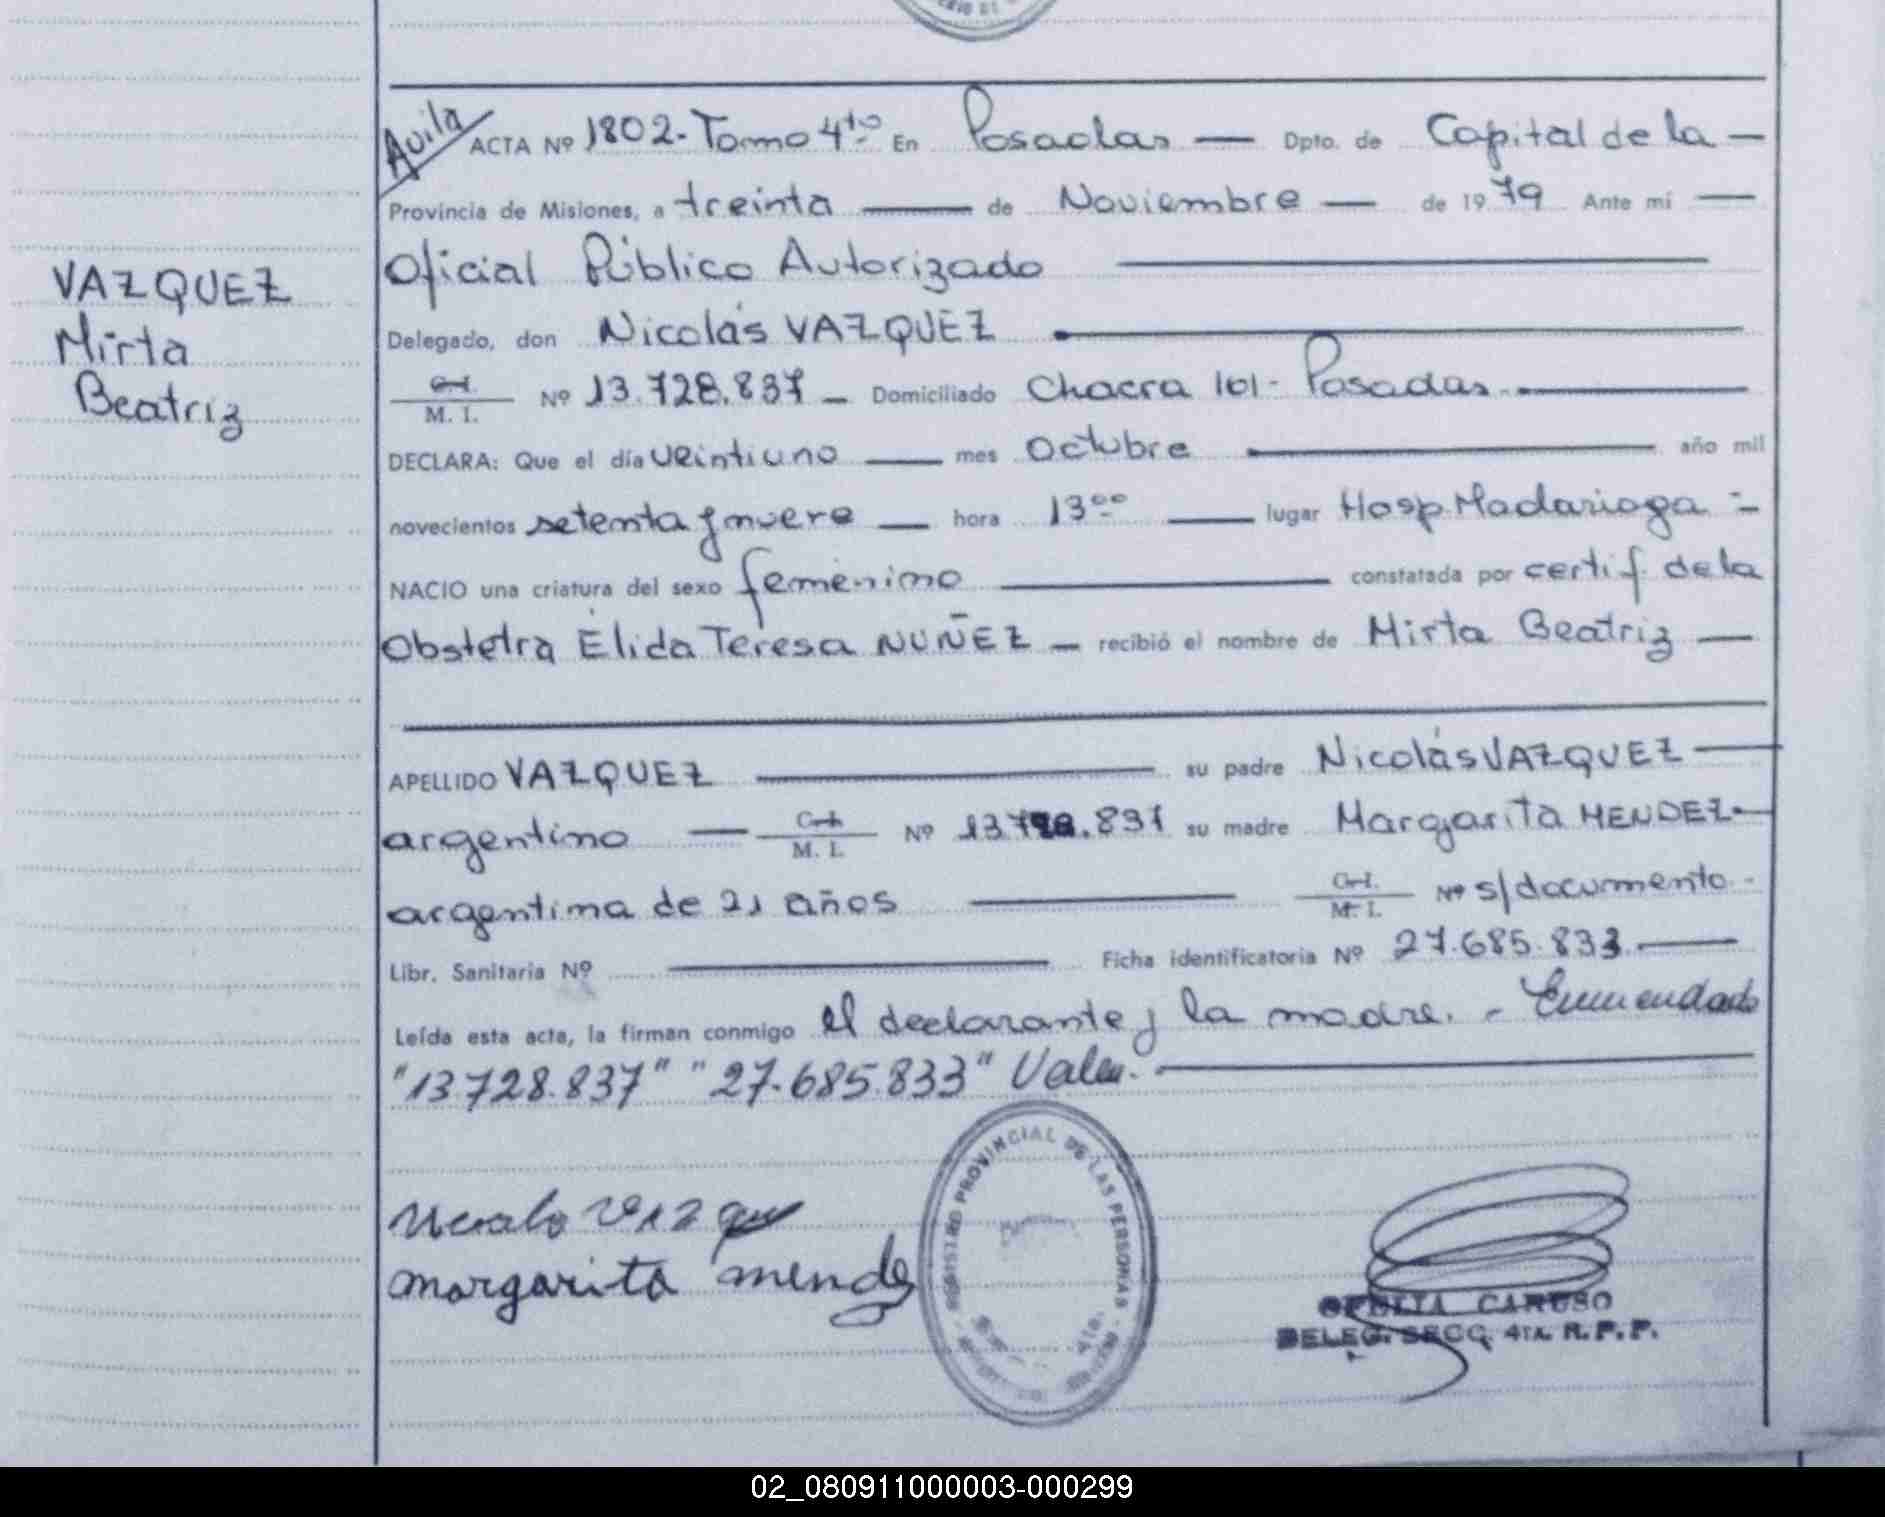 Avila
ACTA Nº 1802- Tomo 4to En Posadas — Dpto. de Capital de la —
Provincia de Misiones, a treinta — de Noviembre — de 1979 Ante mí —
Oficial Público Autorizado
VAZQUEZ
Mirta
Beatriz
Delegado, don Nicolás VAZQUEZ
C. I.
M. I.
Nº 13.728.837 — Domiciliado Chacra 101- Posadas.
DECLARA: Que el día veintiuno — mes Octubre — año mil
novecientos setenta y nueve — hora 13⁰⁰ — lugar Hosp. Madariaga -
NACIO una criatura del sexo femenino — constatada por certif. de la
Obstetra Elida Teresa NUÑEZ — recibió el nombre de Mirta Beatriz —
APELLIDO VAZQUEZ — su padre Nicolás VAZQUEZ —
argentino — C. I. M. I. Nº 13.728.837 su madre Margarita MENDEZ
argentina de 21 años — C. I. M. I. Nº s/documento.-
Libr. Sanitaria Nº — Ficha identificatoria Nº 27.685.833 —
Leída esta acta, la firman conmigo el declarante y la madre. - Enmendado
"13.728.837" "27.685.833" Valen.-
margarita mendez
REGISTRO PROVINCIAL DE LAS PERSONAS
4ta.
OFELIA CARUSO
DELEG. SECC. 4TA. R.P.P.
02_080911000003-000299